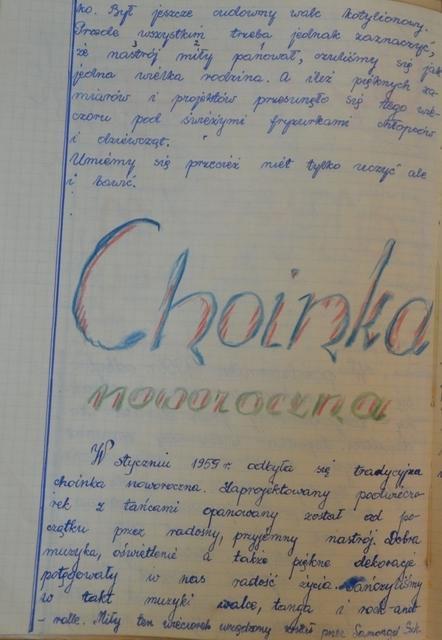 ko. Był jeszcze cudowny walc kotylionowy.
Przede wszystkim trzeba jednak zaznaczyć,
że nastrój miły panował, czuliśmy się jak
jedna wielka rodzina. A ileż pięknych za-
miarów i projektów przesunęło się tego wie-
czoru pod świeżymi fryzurkami chłopców
i dziewcząt.
Umiemy się przecież nie tylko uczyć ale
i bawić.
Choinka
noworoczna
W styczniu 1959 r. odbyła się tradycyjna
choinka noworoczna. Zaprojektowany podwieczo-
rek z tańcami opanowany został od po-
czątku przez radosny, przyjemny nastrój. Dobra
muzyka, oświetlenie a także piękne dekoracje
potęgowały w nas radość życia. Tańczyliśmy
w takt muzyki walce, tanga i rock-and-
-rolle. Miły ten wieczorek urządzony został przez Samorząd Szk-